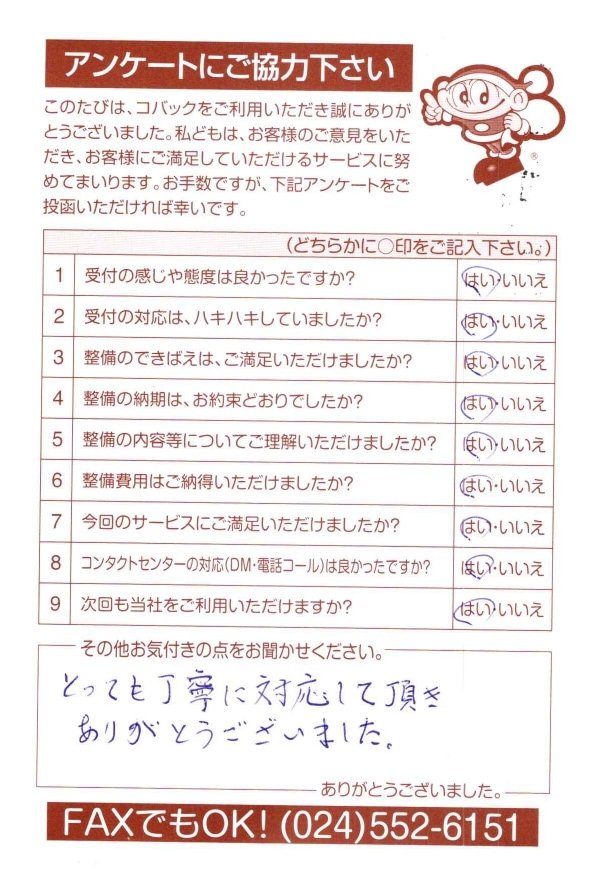 アンケートにご協力下さい
このたびは、コバックをご利用いただき誠にありが
とうございました。私どもは、お客様のご意見をいた
だき、お客様にご満足していただけるサービスに努
めてまいります。お手数ですが、下記アンケートをご
投函いただければ幸いです。
®
(どちらかに○印をご記入下さい。)
1 受付の感じや態度は良かったですか? はい・いいえ
2 受付の対応は、ハキハキしていましたか? はい・いいえ
3 整備のできばえは、ご満足いただけましたか? はい・いいえ
4 整備の納期は、お約束どおりでしたか? はい・いいえ
5 整備の内容等についてご理解いただけましたか? はい・いいえ
6 整備費用はご納得いただけましたか? はい・いいえ
7 今回のサービスにご満足いただけましたか? はい・いいえ
8 コンタクトセンターの対応(DM・電話コール)は良かったですか? はい・いいえ
9 次回も当社をご利用いただけますか? はい・いいえ
その他お気付きの点をお聞かせください。
とっても丁寧に対応して頂き
ありがとうございました。
ありがとうございました。
FAXでもOK! (024)552-6151